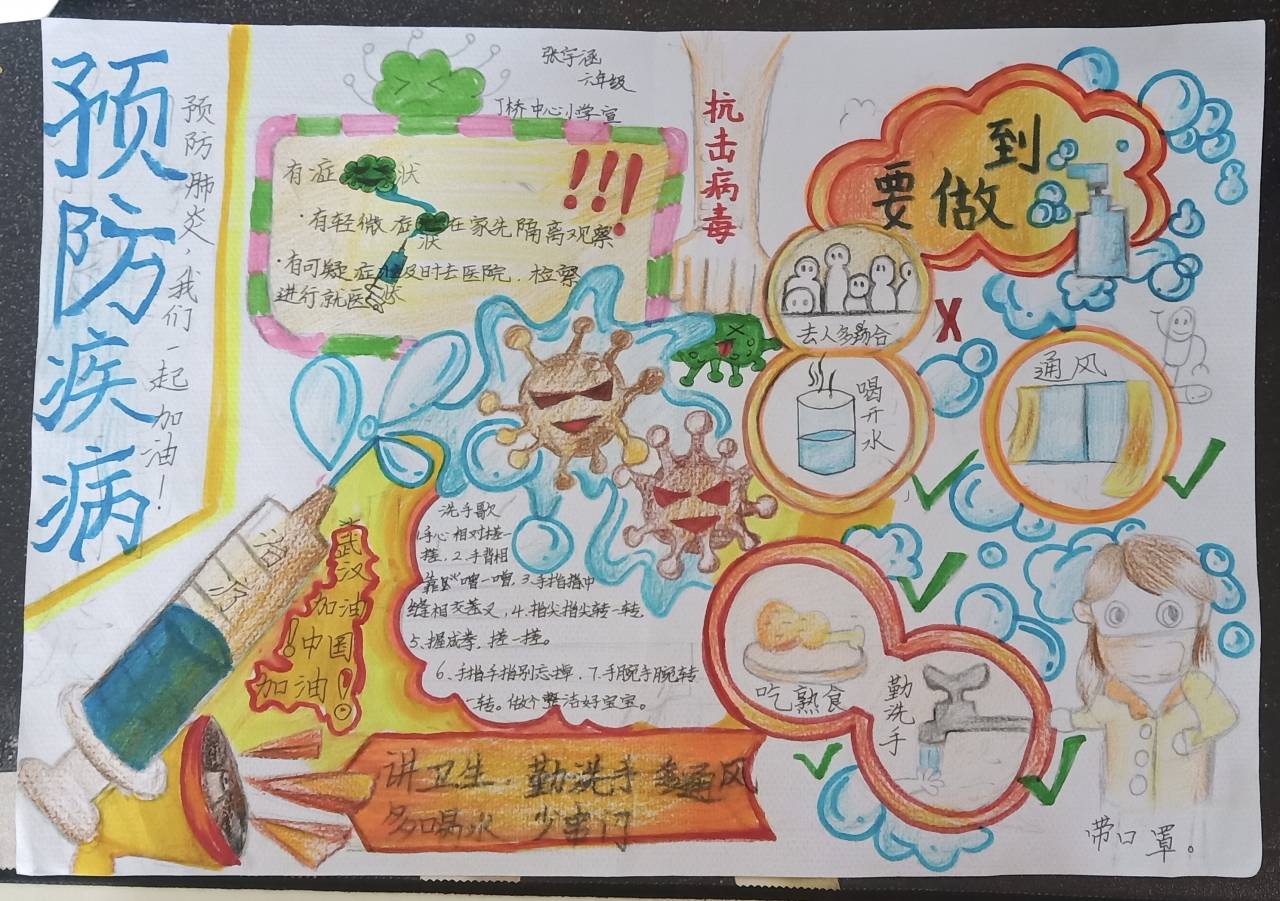 预防疾病
预防肺炎、我们一起加油!
张宇涵
六年级
丁桥中心小学宣
有症状
!!!
·有轻微症状在家先隔离观察
·有可疑症状及时去医院．检察
进行就医
抗击病毒
要做到
去人多场合
X
喝开水
通风
吃熟食
勤洗手
带口罩。
治疗
武汉
加油
!中国
加油!
洗手歌
1.手心相对搓一
搓．2.手背相
靠蹭一蹭．3.手指指中
缝相交叉，4.指尖指尖转一转
5.握成拳．搓一搓。
6.手指手指别忘掉．7.手腕手腕转
一转。做个整洁好宝宝。
讲卫生．勤洗手 通风
多喝水 少串门